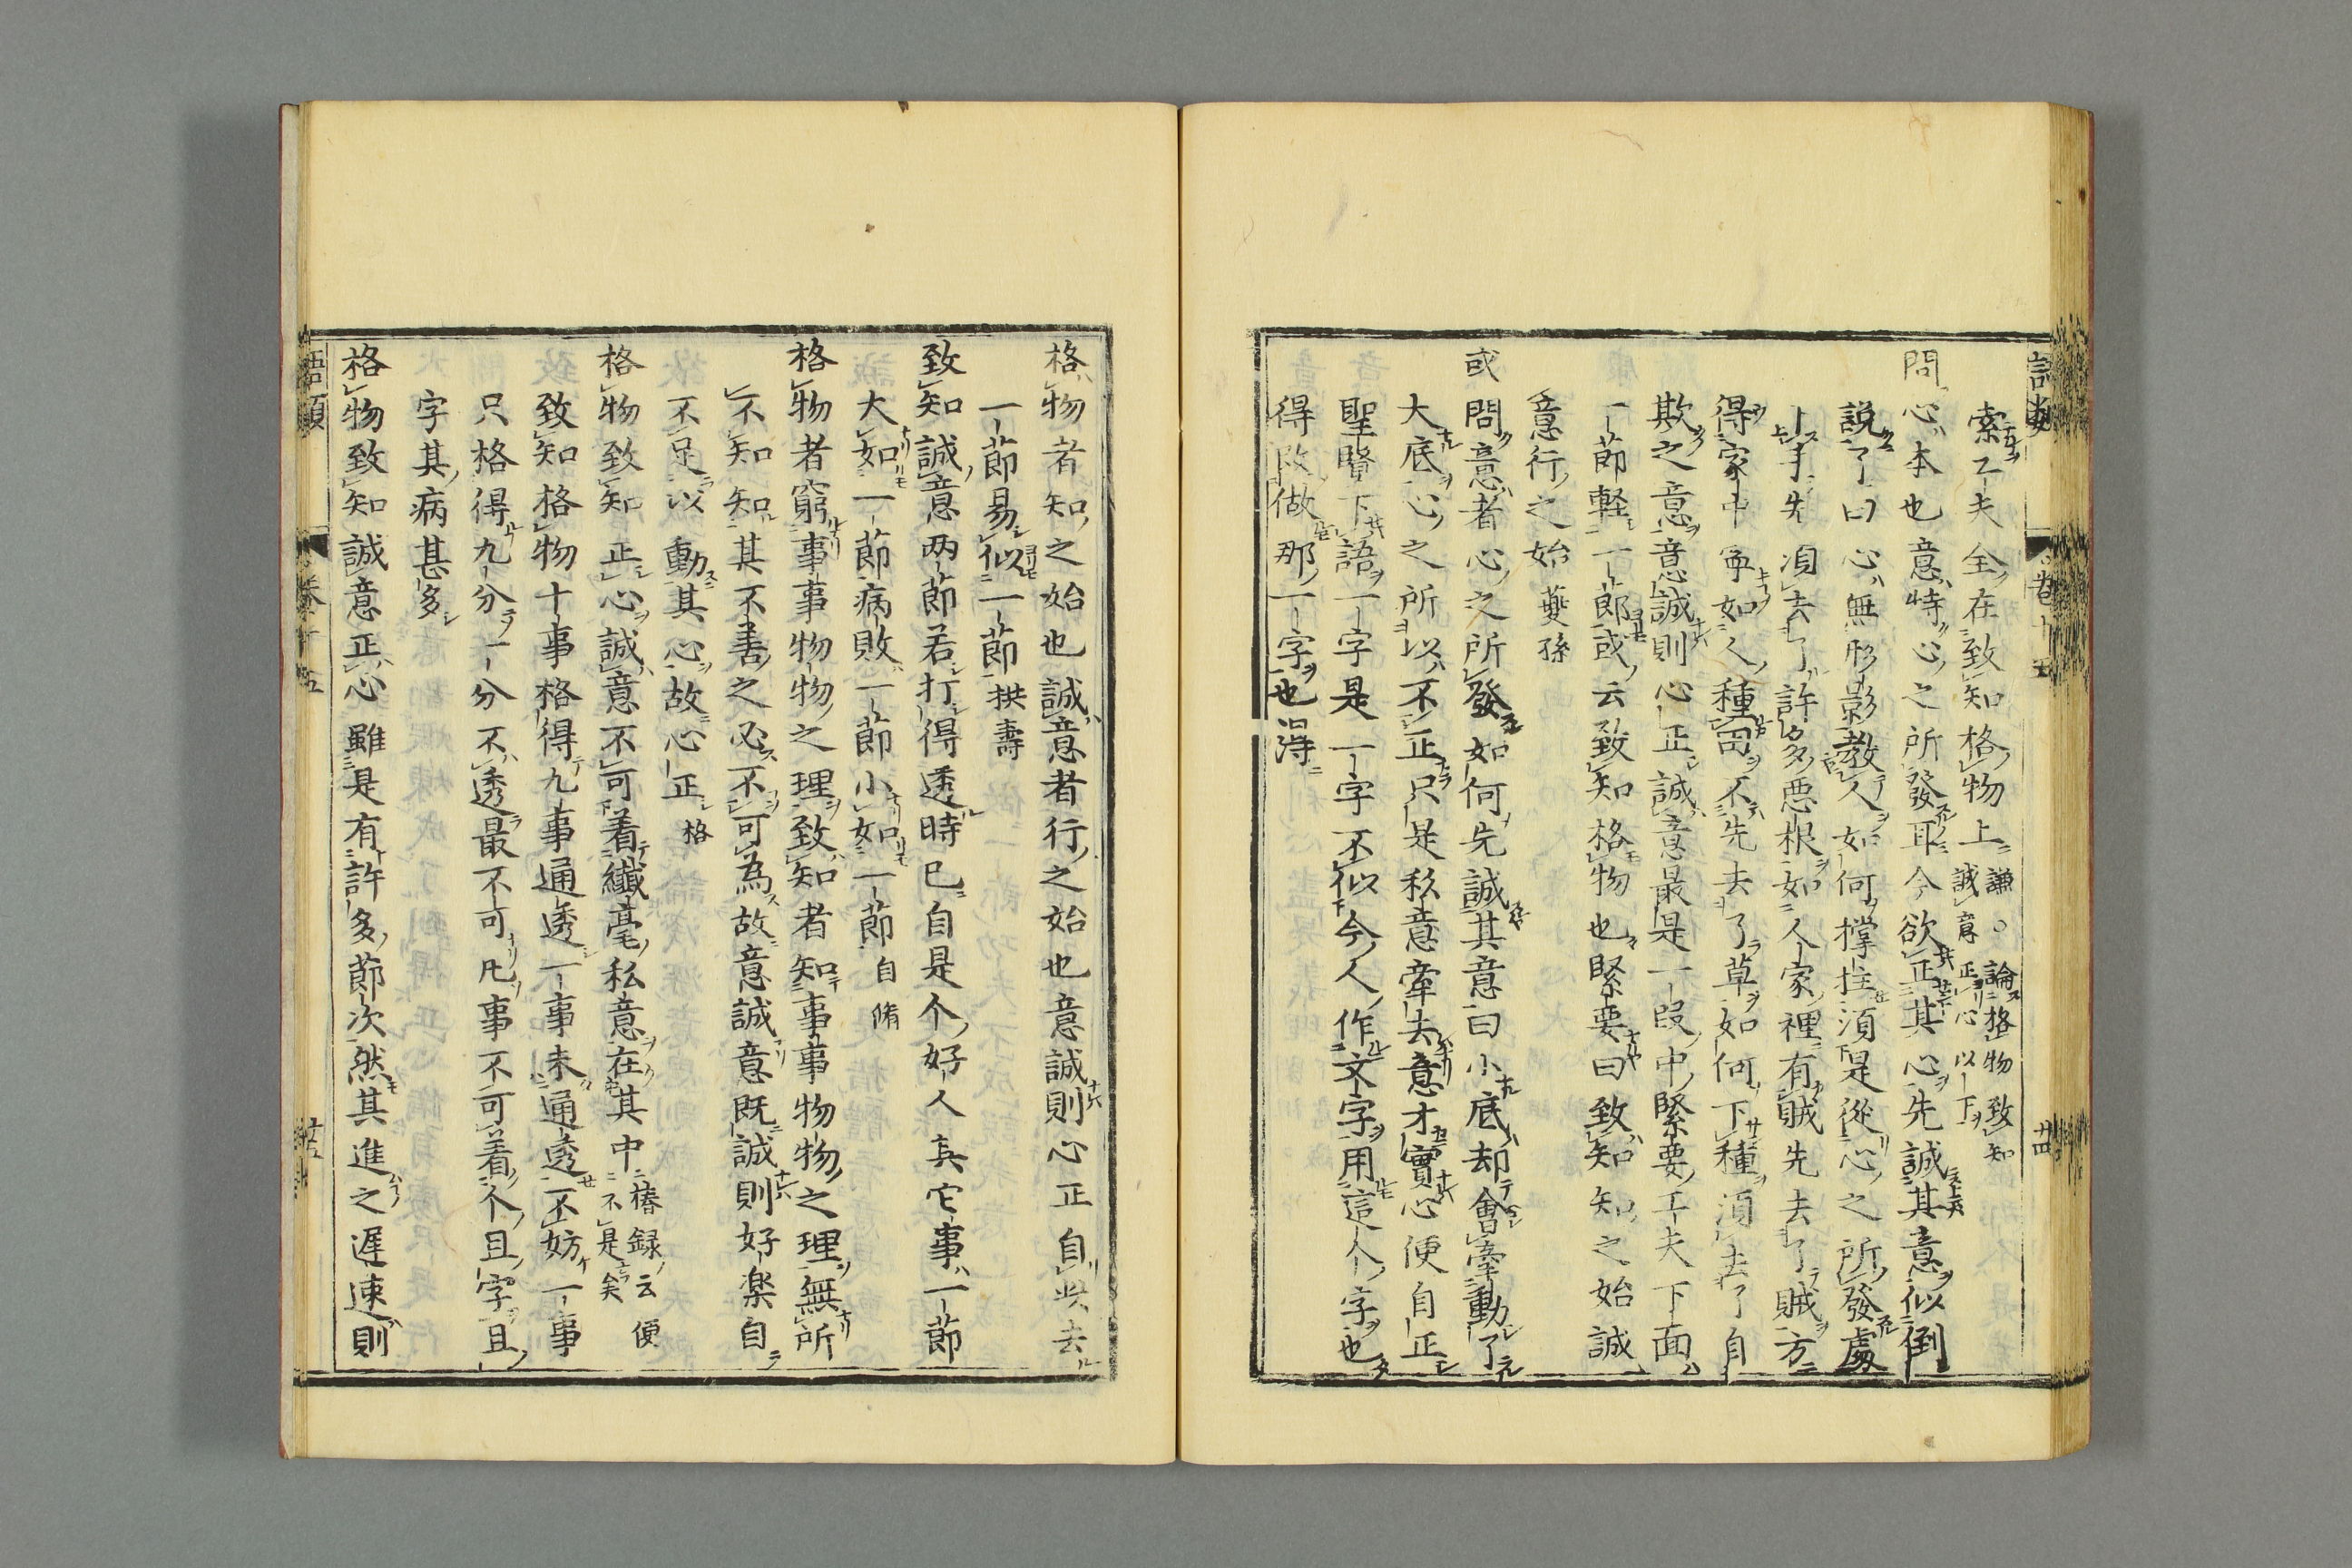 索工夫全在致知格物上 謙○論格物致知
誠意正心以下
問心本也意特心之所發耳今欲正其心先誠其意似倒
說了曰心無形影教人如何撑拄須是從心之所發處
下手先須去了許多惡根如人家裡有賊先去了賊方
得家中寧如人種田不先去了草如何下種須去了自
欺之意意誠則心正誠意最是一段中緊要工夫下面
一節輕一節或云致知格物也緊要曰致知知之始誠
意行之始 夔孫
或問意者心之所發如何先誠其意曰小底却會牽動了
大底心之所以不正只是私意牽去意才實心便自正
聖賢下語一字是一字不似今人作文字用這个字也
得改做那一字也得
語類 卷十五 廿四
格物者知之始也誠意者行之始也意誠則心正自此去
一節易似一節 拱壽
致知誠意兩節若打得透時已自是个好人其它事一節
大如一節病敗一節小如一節 自脩
格物者窮事事物物之理致知者知事事物物之理無所
不知知其不善之必不可為故意誠意既誠則好樂自
不足以動其心故心正 格
格物致知正心誠意不可着纖毫私意在其中 椿録云便
不是矣
致知格物十事格得九事通透一事未通透不妨一事
只格得九分一分不透最不可凡事不可着个且字且
字其病甚多
格物致知誠意正心雖是有許多節次然其進之遲速則
語類 卷十五